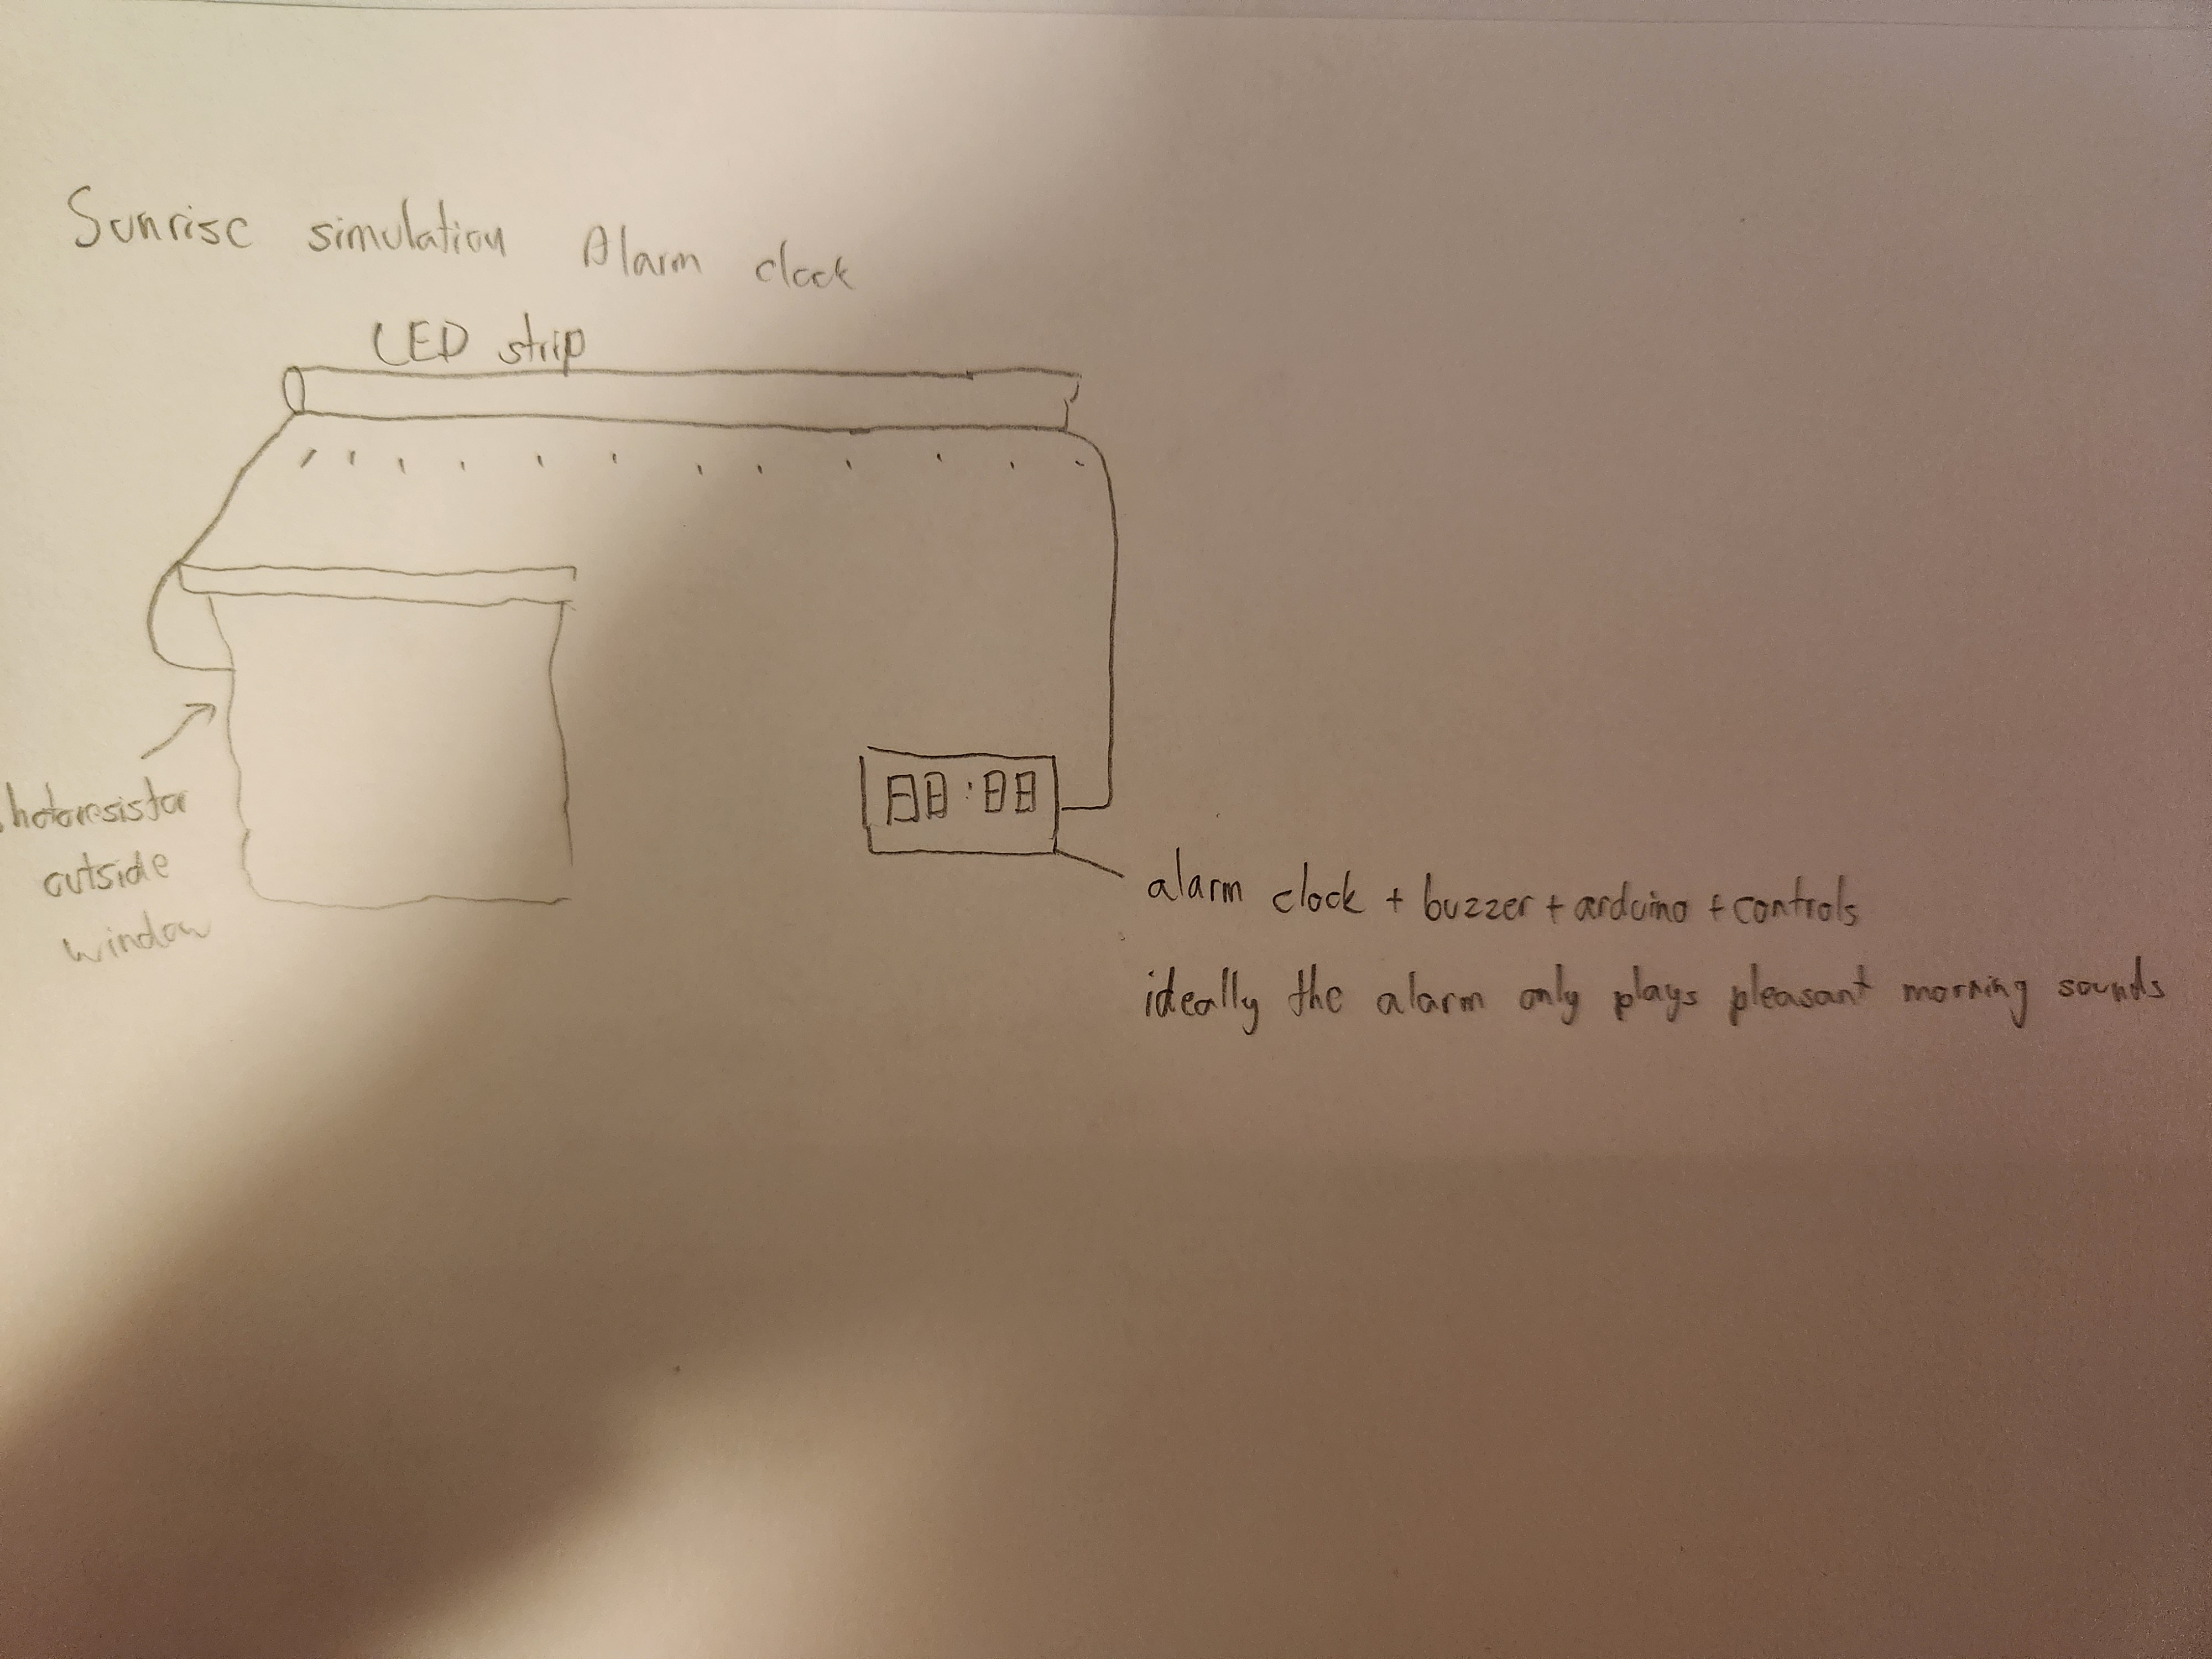 Sunrise simulation Alarm clock
LED strip
88:88
hotoresistor
outside
window
alarm clock + buzzer + arduino + controls
ideally the alarm only plays pleasant morning sounds